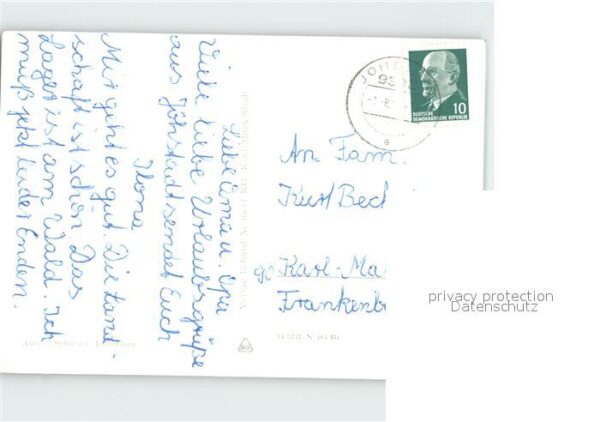 Liebe Oma u. Opa
Viele liebe Urlaubsgrüße
aus Jöhstadt sendet Euch
Ilona
Mir geht es gut. Die Land-
schaft ist schön. Das
Lager ist am Wald. Ich
muß jetzt leider Enden.
DEUTSCHE
DEMOKRATISCHE REPUBLIK
10
93
a
An Fam.
Kurt Bec
90 Karl-Ma
Frankenb
privacy protection
Datenschutz